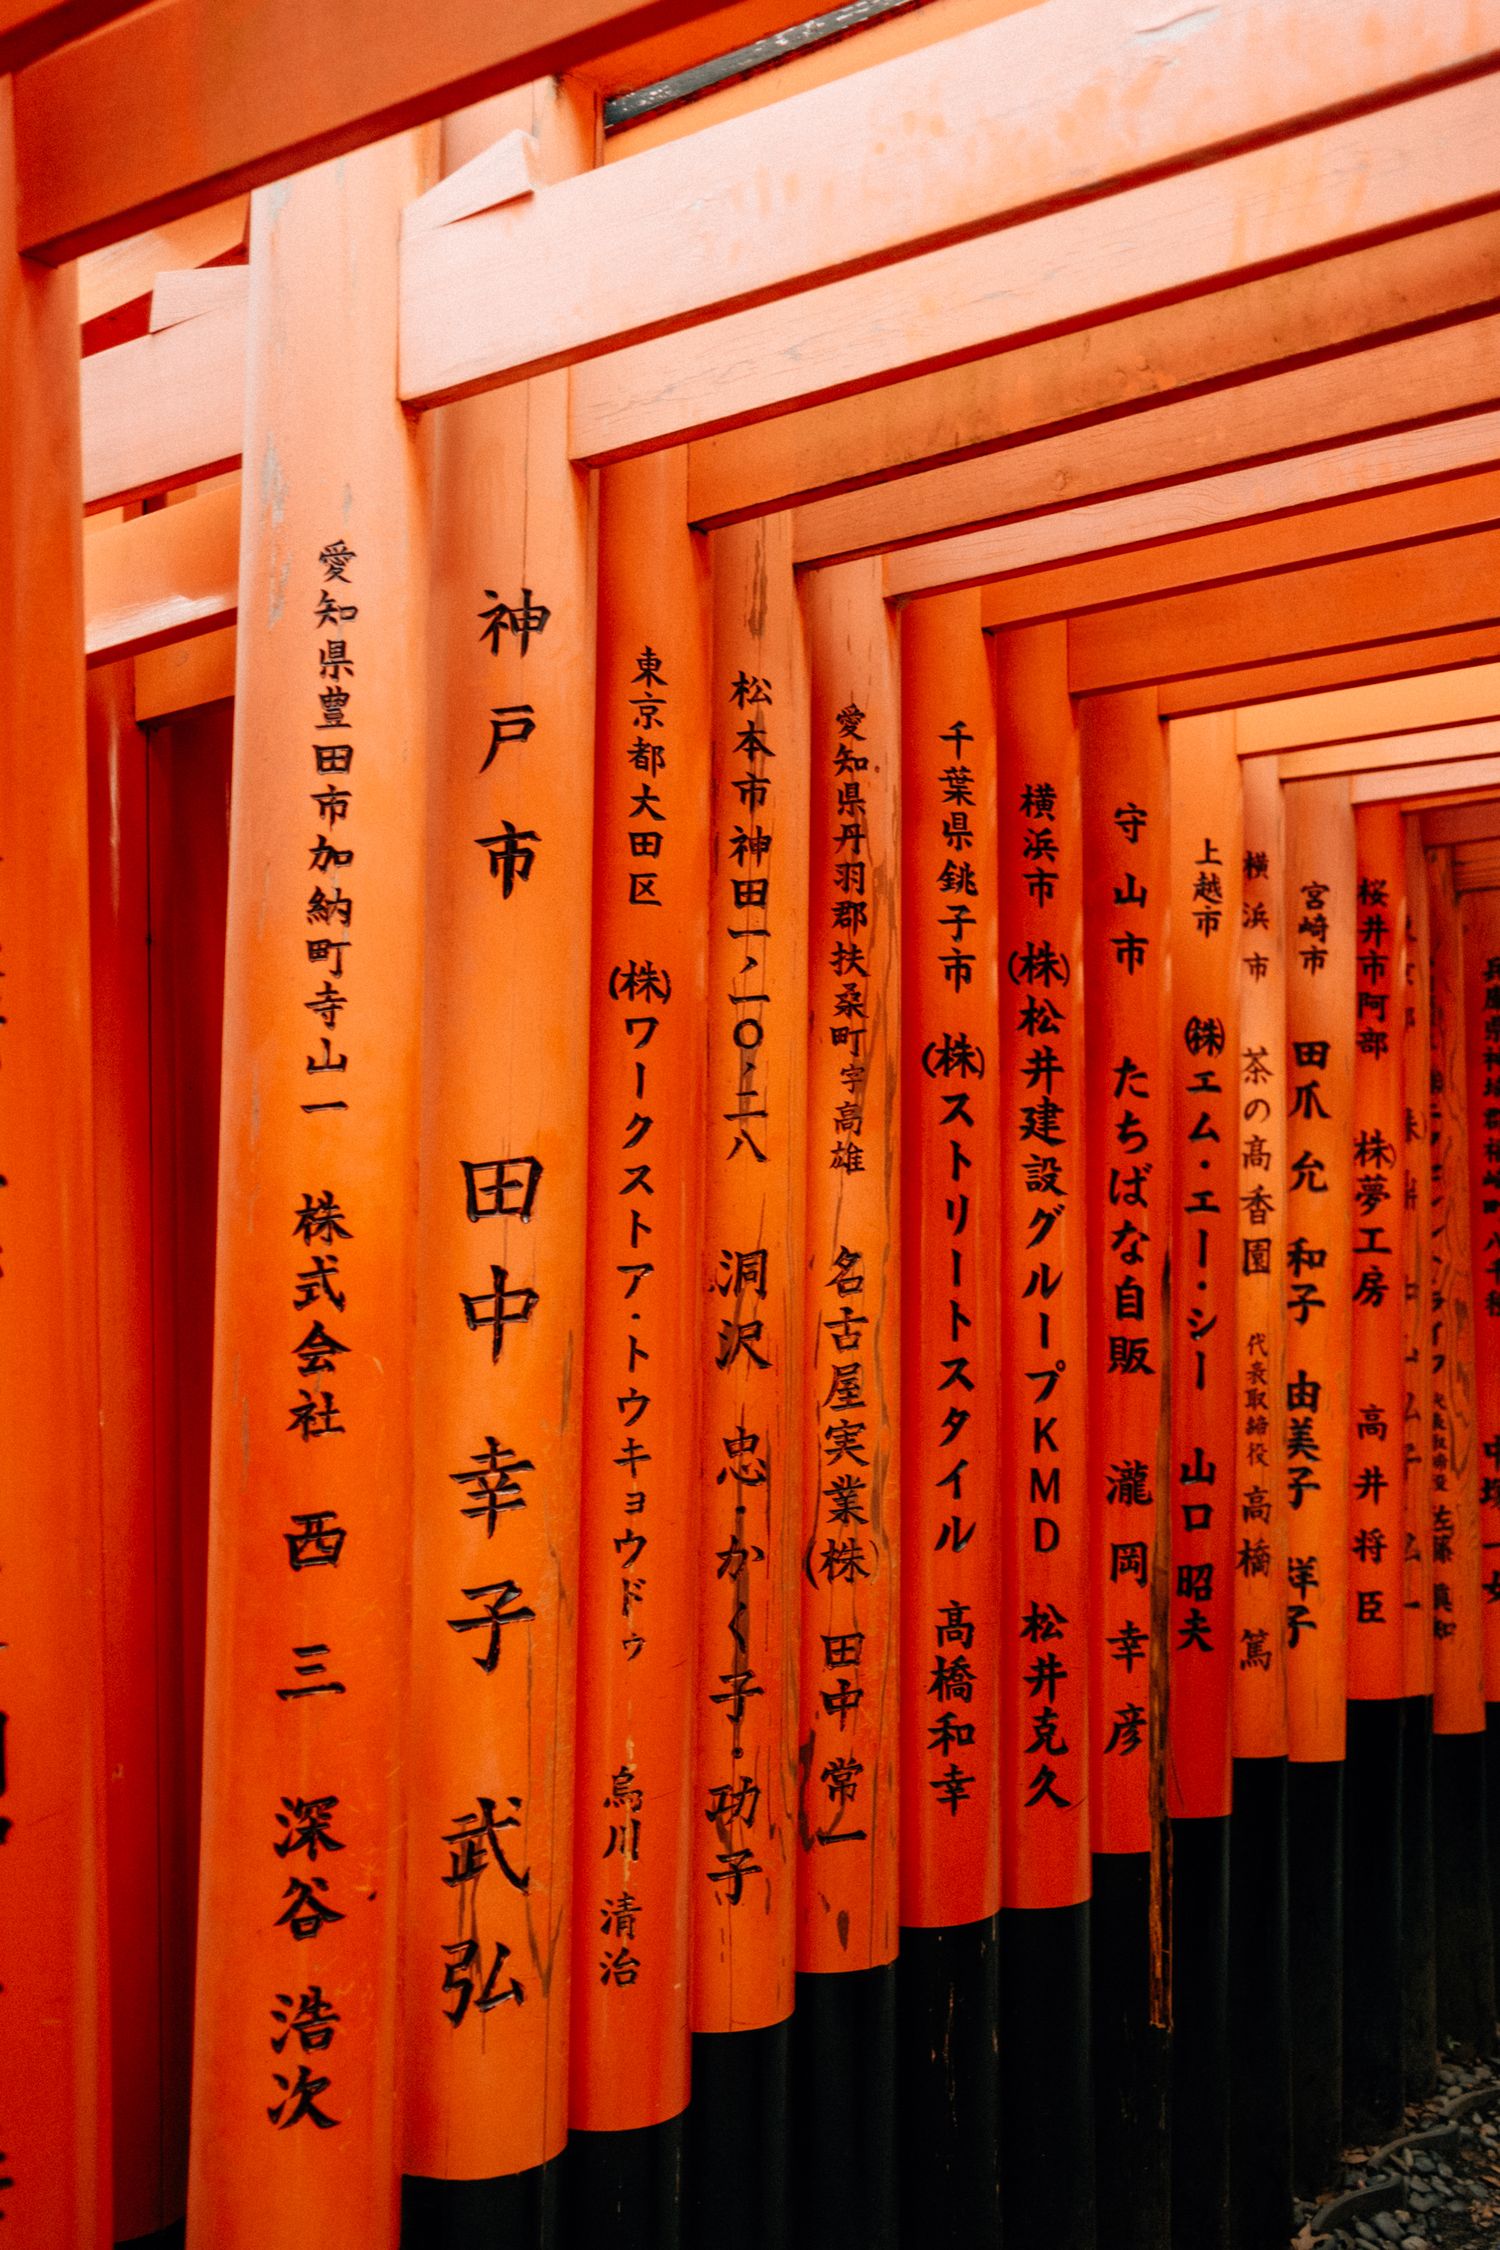 愛知県豊田市加納町寺山一 株式会社 西三 深谷浩次
神戸市 田中幸子 武弘
東京都大田区 (株)ワークストア・トウキョウドゥ 烏川 清治
松本市神田一ノ一〇ノ二八 洞沢 忠・かく子・功子
愛知県丹羽郡扶桑町字高雄 名古屋実業(株) 田中常一
千葉県銚子市 (株)ストリートスタイル 高橋和幸
横浜市 (株)松井建設グループKMD 松井克久
守山市 たちばな自販 瀧岡幸彦
上越市 (株)エム・エー・シー 山口昭夫
横浜市 茶の高香園 代表取締役 高橋 篤
宮崎市 田爪允 和子 由美子 祥子
桜井市阿部 (株)夢工房 高井将臣